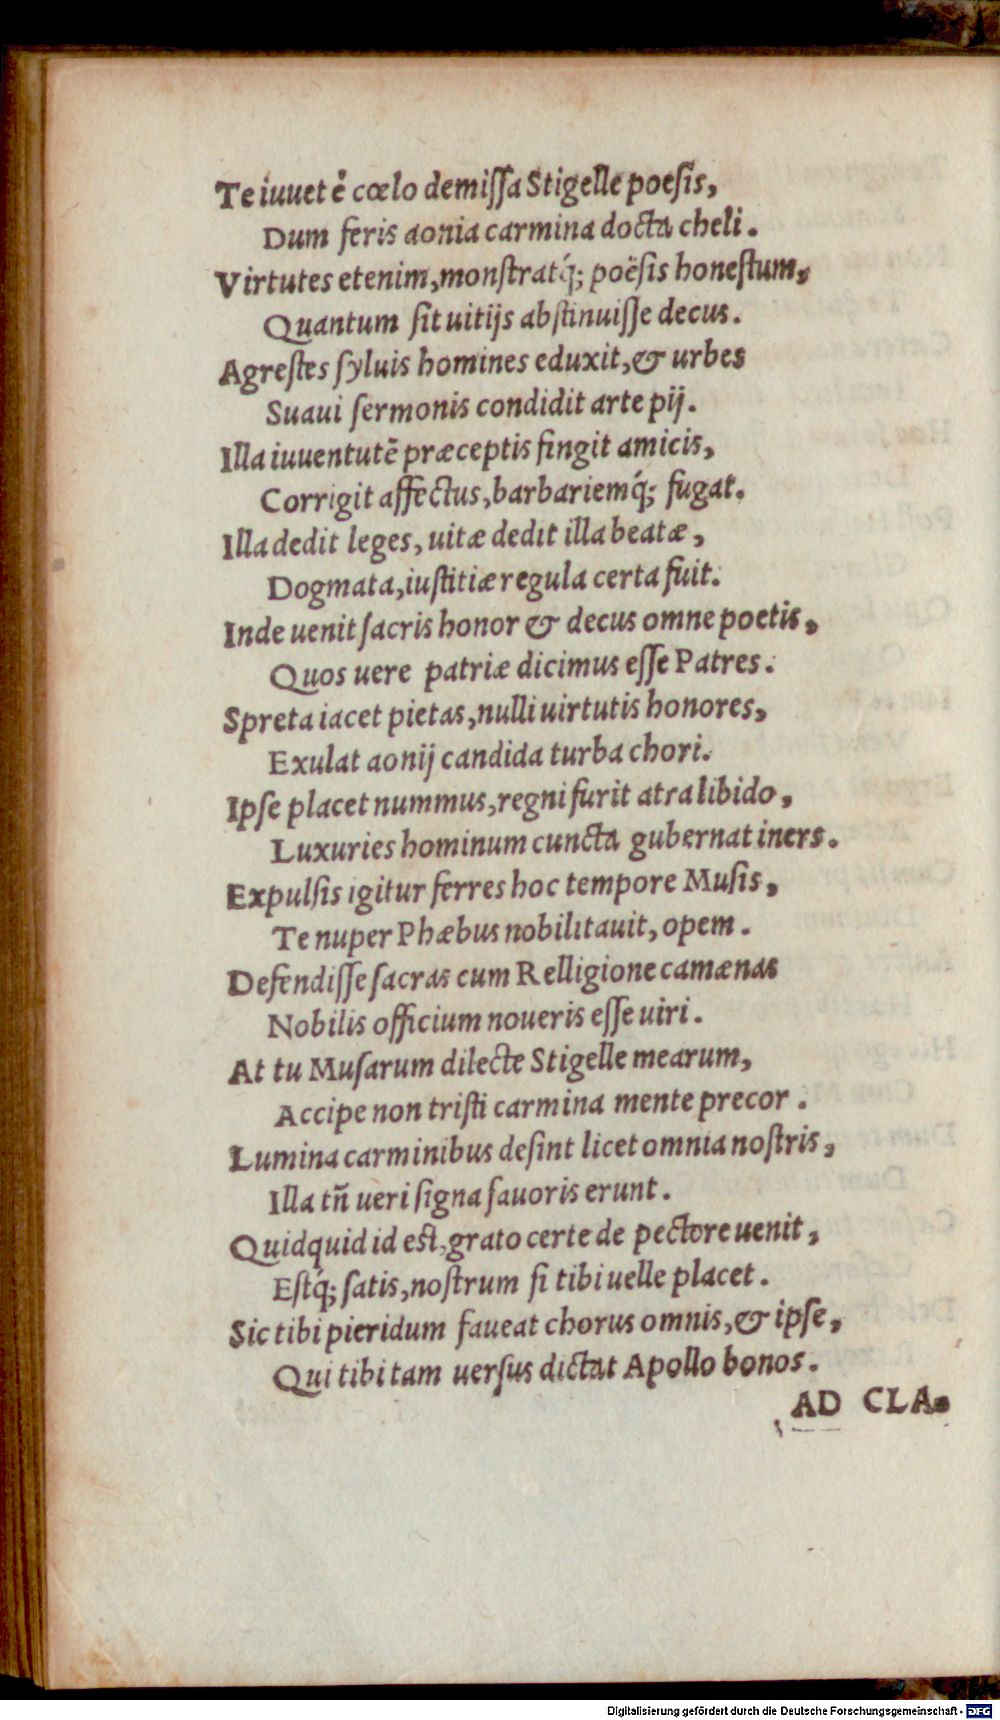 Te iuuet ẽ cœlo demiſſa Stigelle poeſis,
Dum feris aonia carmina docta cheli.
Virtutes etenim, monſtratq́; poëſis honeſtum,
Quantum ſit uitijs abſtinuiſſe decus.
Agreſtes ſyluis homines eduxit, & urbes
Suaui ſermonis condidit arte pij.
Illa iuuentutẽ præceptis fingit amicis,
Corrigit affectus, barbariemq́; fugat.
Illa dedit leges, uitæ dedit illa beatæ,
Dogmata, iuſtitiæ regula certa fuit.
Inde uenit ſacris honor & decus omne poetis,
Quos uere patriæ dicimus eſſe Patres.
Spreta iacet pietas, nulli uirtutis honores,
Exulat aonij candida turba chori.
Ipſe placet nummus, regni furit atra libido,
Luxuries hominum cuncta gubernat iners.
Expulſis igitur ferres hoc tempore Muſis,
Te nuper Phæbus nobilitauit, opem.
Defendiſſe ſacras cum Relligione camænas
Nobilis officium noueris eſſe uiri.
At tu Muſarum dilecte Stigelle mearum,
Accipe non triſti carmina mente precor.
Lumina carminibus deſint licet omnia noſtris,
Illa tñ ueri ſigna fauoris erunt.
Quidquid id eſt, grato certe de pectore uenit,
Eſtq́; ſatis, noſtrum ſi tibi uelle placet.
Sic tibi pieridum faueat chorus omnis, & ipſe,
Qui tibi tam uerſus dictat Apollo bonos.
AD CLA.
Digitalisierung gefördert durch die Deutsche Forschungsgemeinschaft - DFG